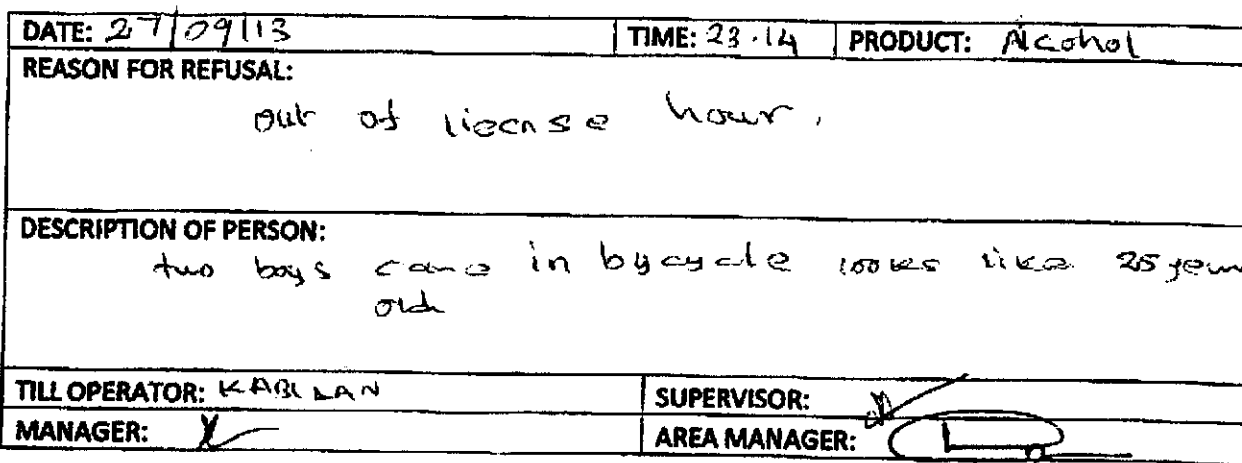 DATE: 27/09/13 TIME: 23.14 PRODUCT: Alcohol
REASON FOR REFUSAL:
out of license hour.
DESCRIPTION OF PERSON:
two boys came in bycycle looks like 25 years
old
TILL OPERATOR: SUPERVISOR:
MANAGER: AREA MANAGER: